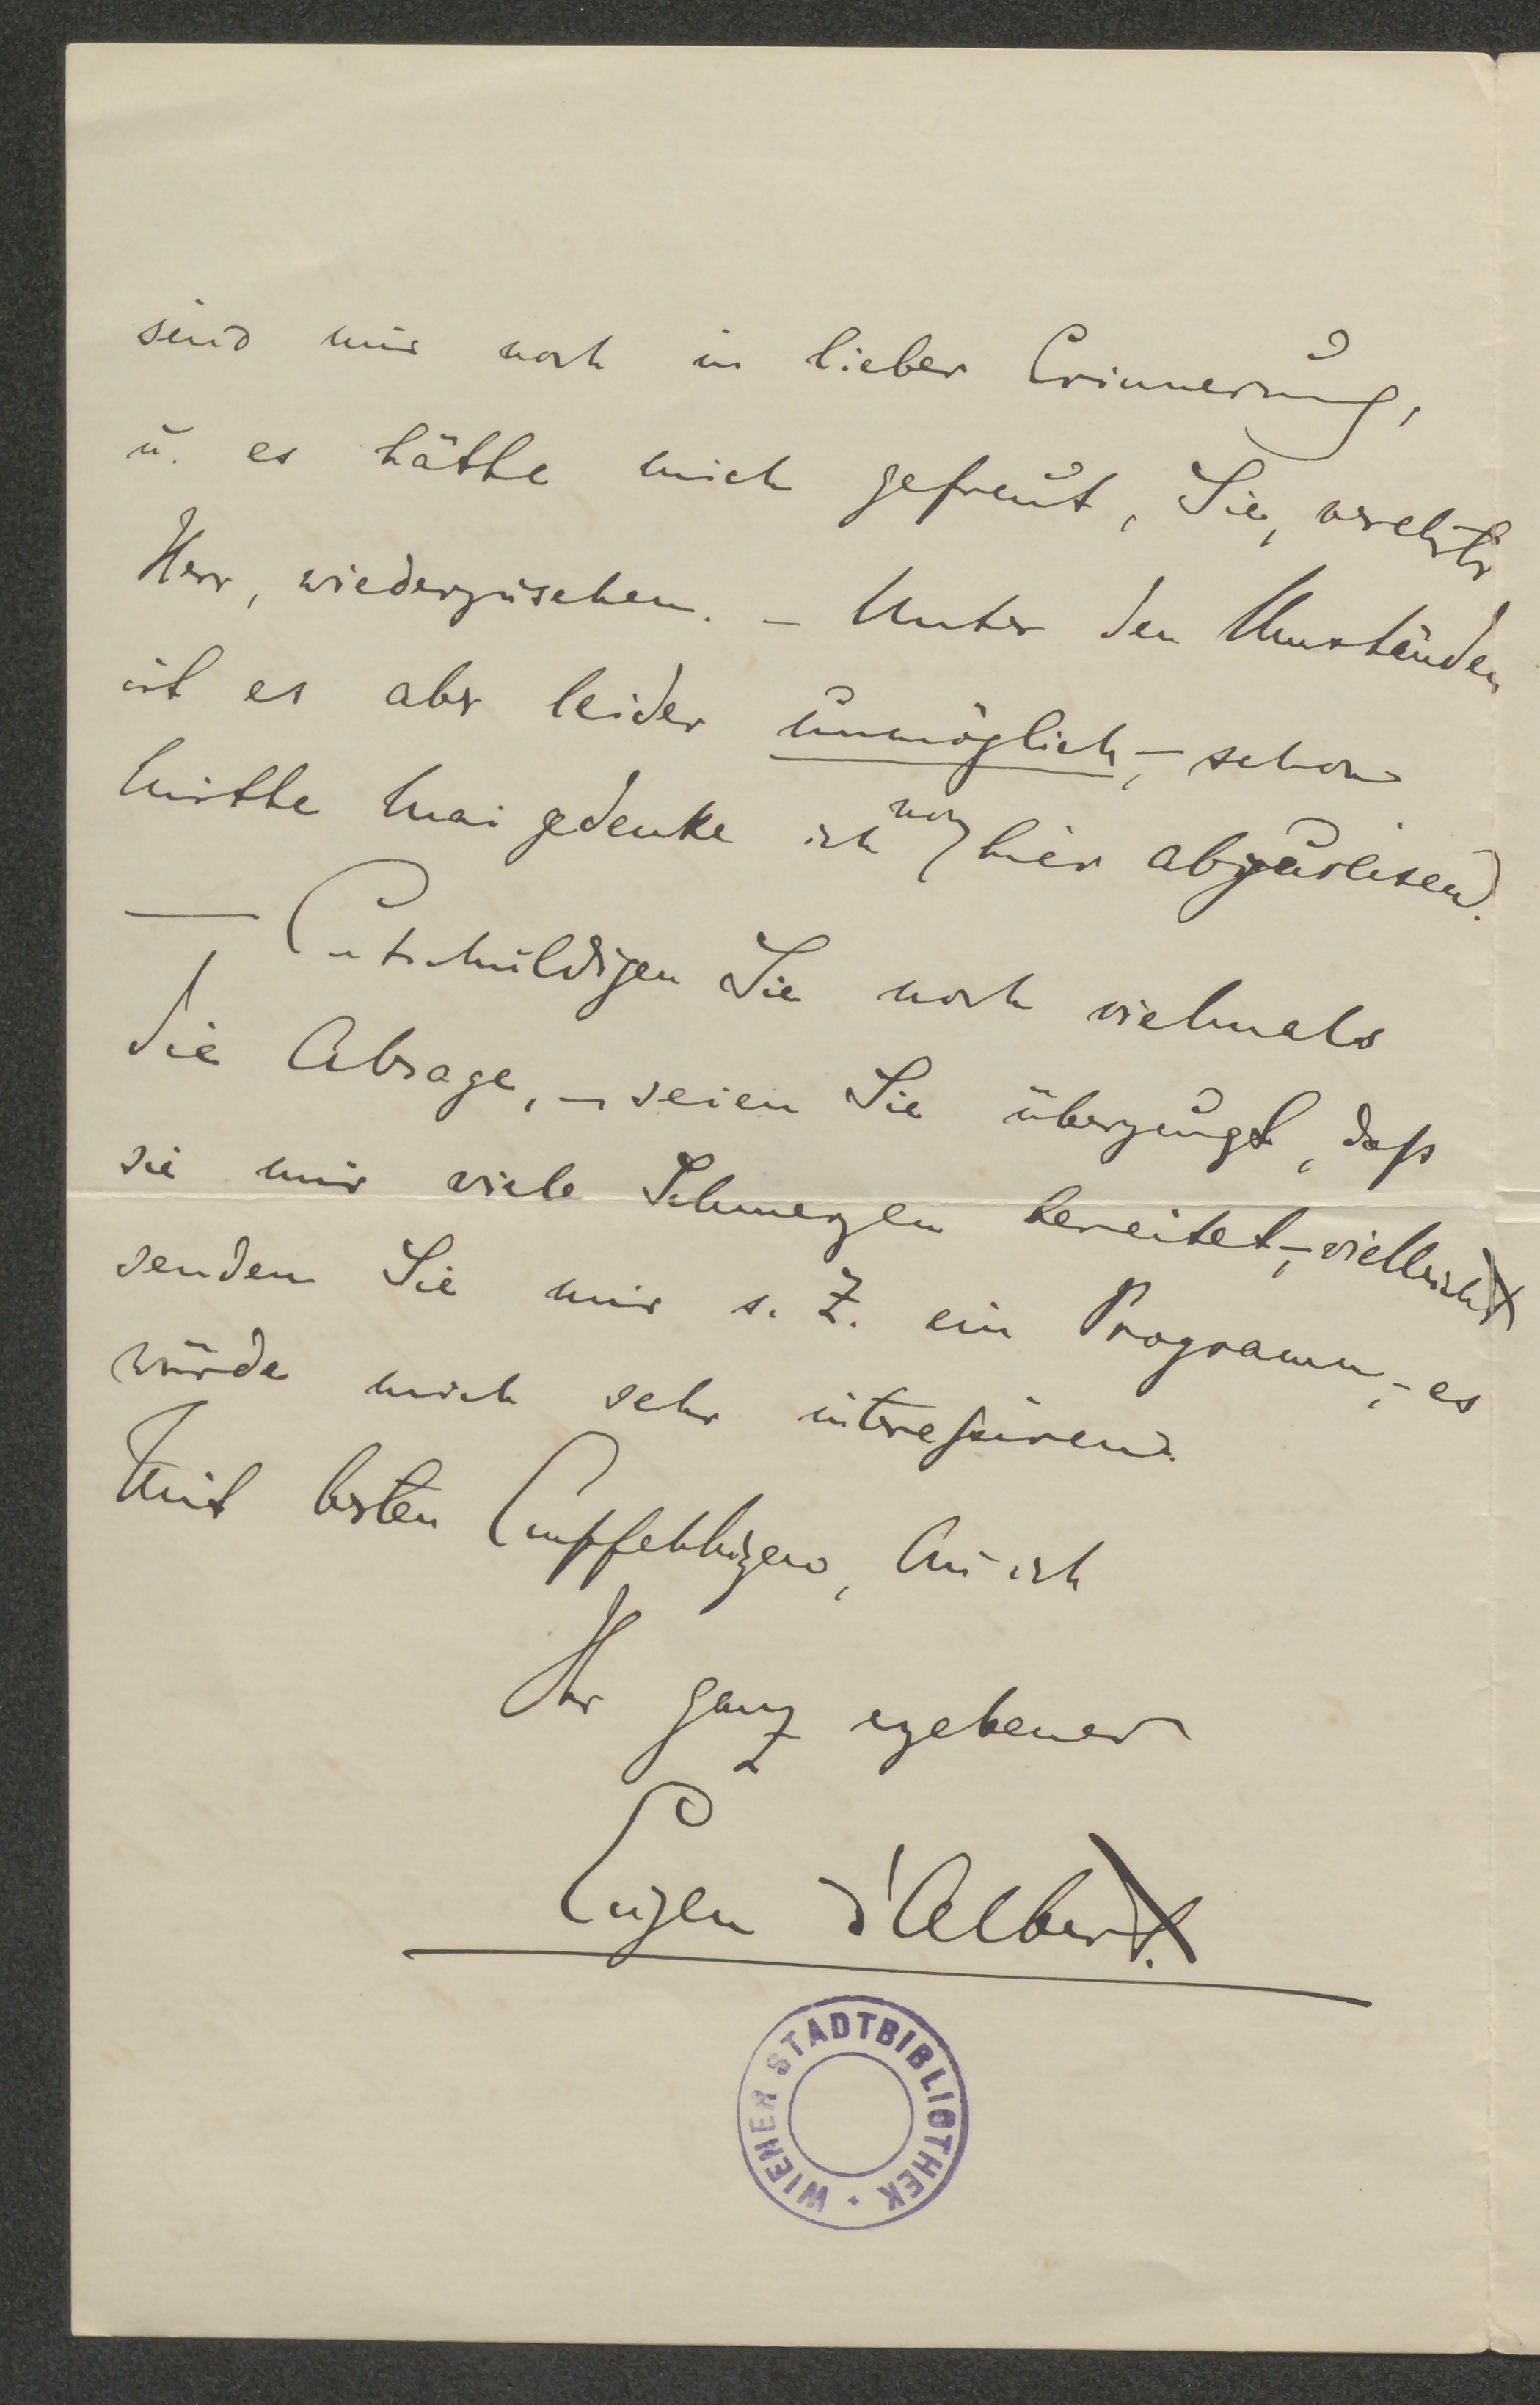 sind mir noch in lieber Erinnerung,
u. es hätte mich gefreut, Sie, verehrter
Herr, wiederzusehen. – Unter den Umständen
ist es aber leider unmöglich, – schon
Mitte Mai gedenke ich von hier abzureisen.
— Entschuldigen Sie noch vielmals
die Absage, – seien Sie überzeugt, daß
sie mir viele Schmerzen bereitet, – vielleicht
senden Sie mir s. Z. ein Programm, – es
würde mich sehr intereßiren.
Mit besten Empfehlungen, bin ich
Ihr ganz ergebener
Eugen d'Albert.
WIENER STADTBIBLIOTHEK